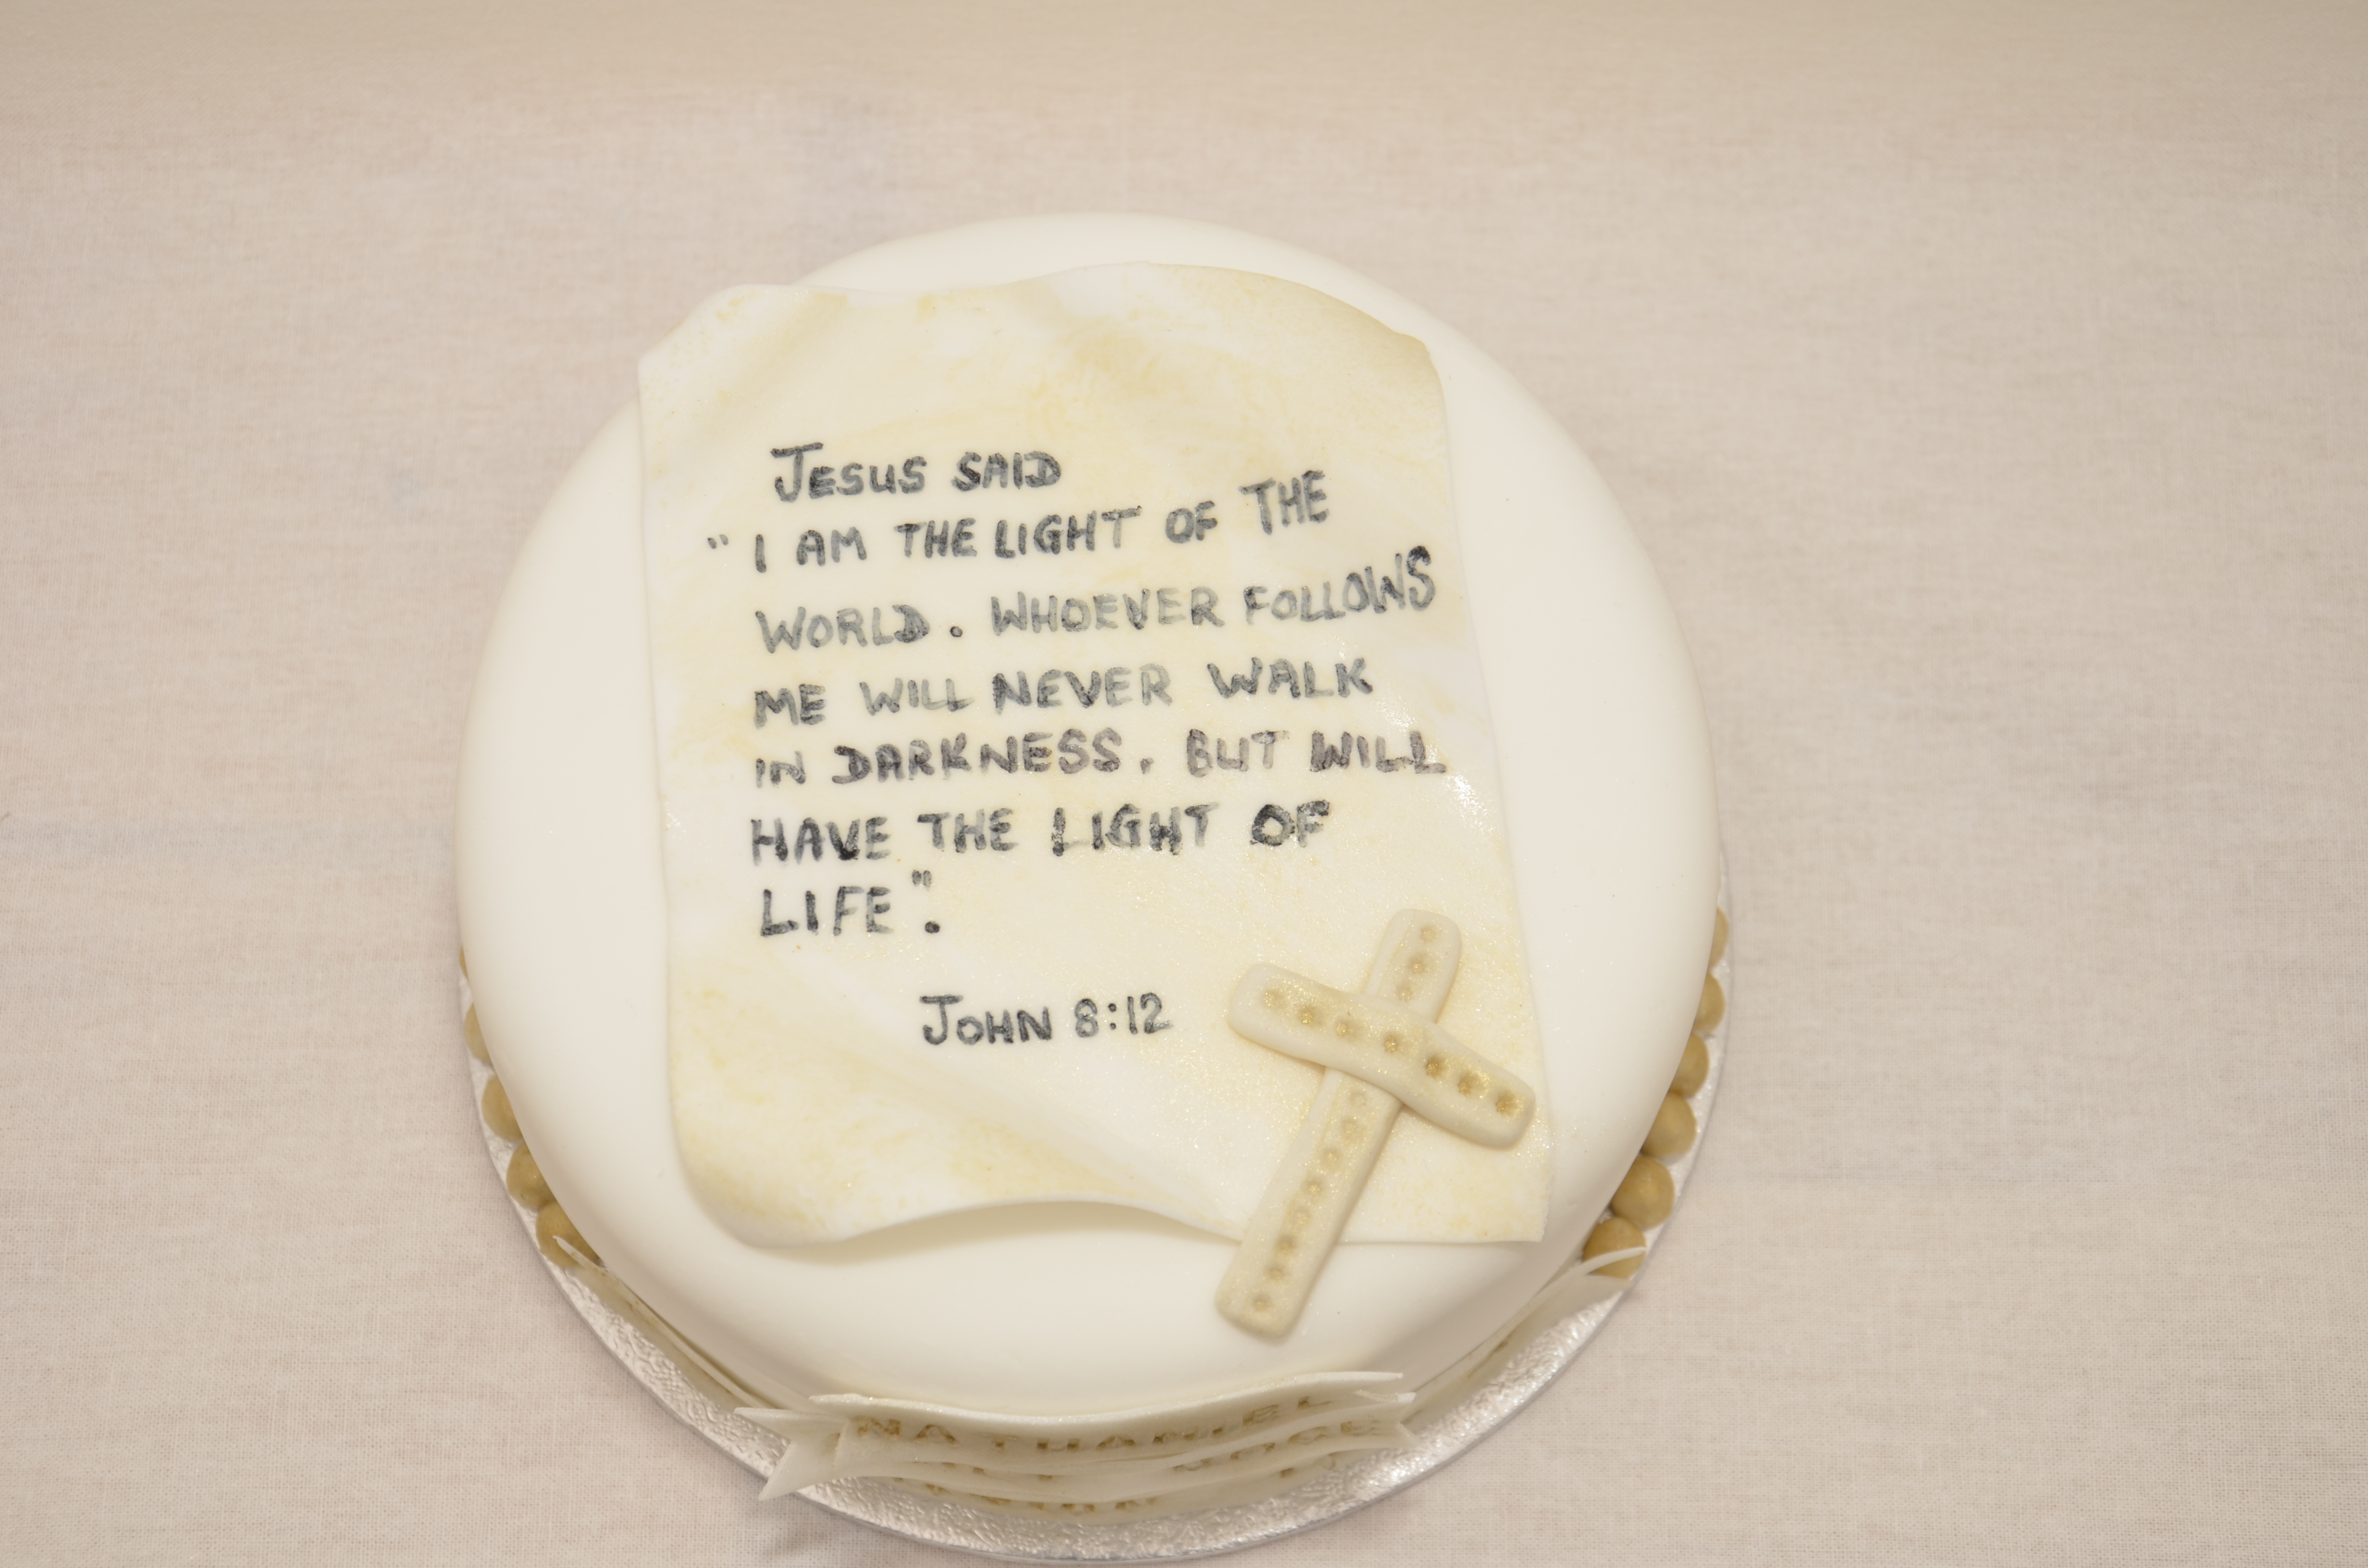 JESUS SAID
"I AM THE LIGHT OF THE
WORLD. WHOEVER FOLLOWS
ME WILL NEVER WALK
IN DARKNESS. BUT WILL
HAVE THE LIGHT OF
LIFE".
JOHN 8:12
NATHANIEL